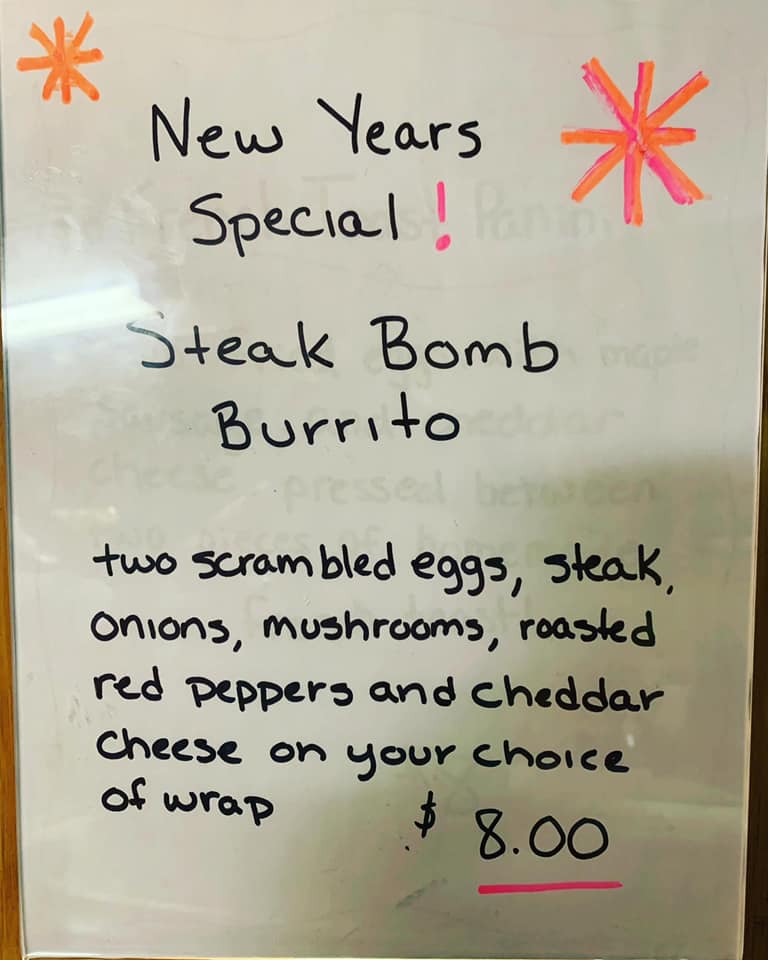 New Years
Special!
Steak Bomb
Burrito
two scrambled eggs, steak,
onions, mushrooms, roasted
red peppers and cheddar
cheese on your choice
of wrap
$ 8.00